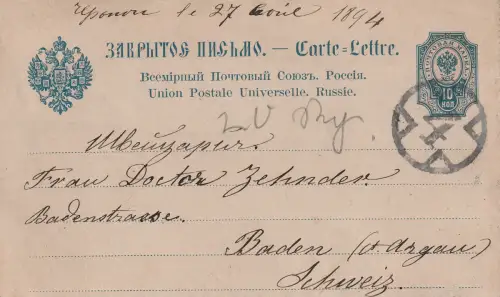 le 27 1894
ЗАКРЫТОЕ ПИСЬМО. — Carte=Lettre.
Всемірный Почтовый Союзъ. Россія.
Union Postale Universelle. Russie.
ПОЧТОВАЯ МАРКА
10
КОП
Швейцарія.
Frau Doctor Zehnder.
Badenstrasse.
Baden (Ct. Argau)
Schweiz.